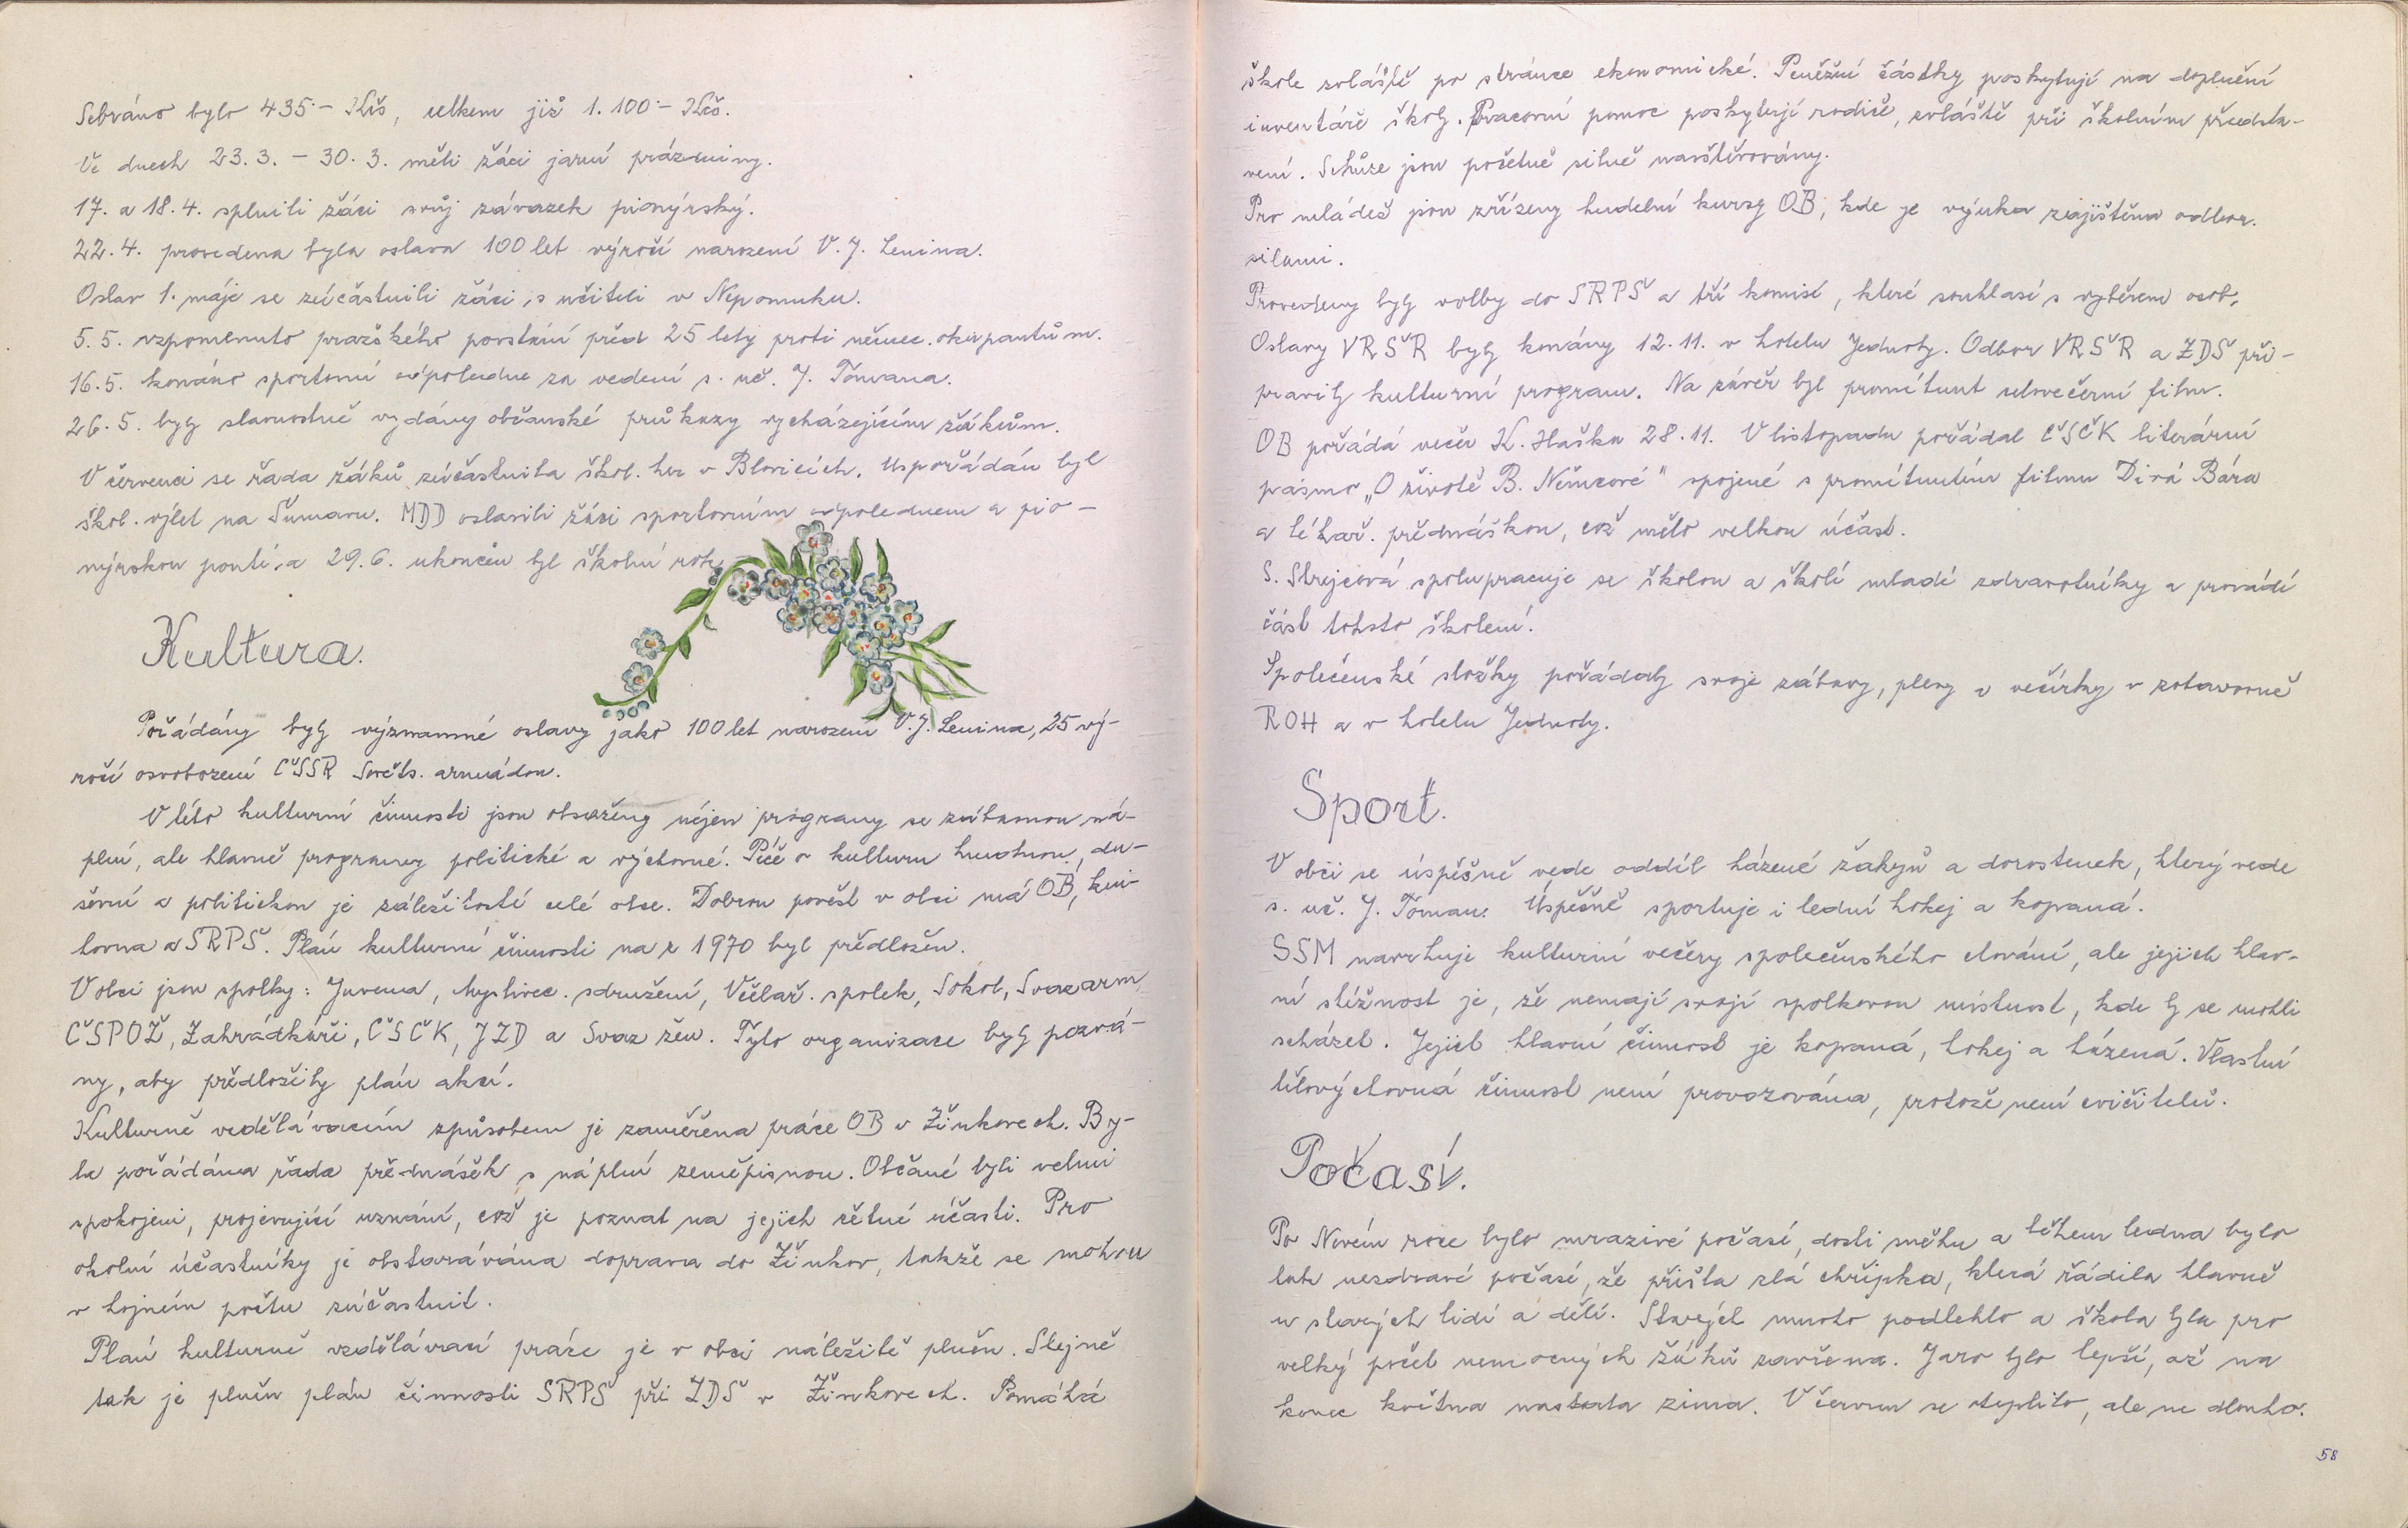 Sebráno bylo 435·– Kčs, celkem již 1.100·– Kčs.
Ve dnech 23.3. – 30.3. měli žáci jarní prázdniny.
17. a 18.4. splnili žáci svůj závazek pionýrský.
22.4. provedena byla oslava 100 let výročí narození V. J. Lenina.
Oslav 1. máje se zúčastnili žáci s učiteli v Nepomuku.
5.5. vzpomenuto pražského povstání před 25 lety proti němec. okupantům.
16.5. konáno sportovní odpoledne za vedení s. uč. J. Tomana.
26.5. byly slavnostně vydány občanské průkazy vycházejícím žákům.
V červenci se řada žáků zúčastnila škol. her v Blovicích. Uspořádán byl
škol. výlet na Šumavu. MDD oslavili žáci sportovním odpolednem a pio-
nýrskou poutí, a 29.6. ukončen byl školní rok.
Kultura.
Pořádány byly významné oslavy jako 100 let narození V. J. Lenina, 25 vý-
ročí osvobození ČSSR Sověts. armádou.
V této kulturní činnosti jsou obsaženy nejen programy se zábavnou ná-
plní, ale hlavně programy politické a výchovné. Péče o kulturu hmotnou, du-
ševní a politickou je záležitostí celé obce. Dobrou pověst v obci má OB, kni-
hovna a SRPŠ. Plán kulturní činnosti na r 1970 byl předložen.
V obci jsou spolky: Juvena, Myslivec. sdružení, Včelař. spolek, Sokol, Svazarm,
ČSPOŽ, Zahrádkáři, ČSČK, JZD a Svaz žen. Tyto organizace byly pozvá-
ny, aby předložily plán akcí.
Kulturně vzdělávacím způsobem je zaměřena práce OB v Žinkovech. By-
la pořádána řada přednášek s náplní zeměpisnou. Občané byli velmi
spokojeni, projevující uznání, což je poznat na jejich četné účasti. Pro
okolní účastníky je obstarávána doprava do Žinkov, takže se mohou
v hojném počtu zúčastnit.
Plán kulturně vzdělávací práce je v obci náležitě plněn. Stejně
tak je plněn plán činnosti SRPŠ při ZDŠ v Žinkovech. Pomáhá
škole zvláště po stránce ekonomické. Peněžní částky poskytují na doplnění
inventáře školy. Pracovní pomoc poskytují rodiče, zvláště při školním předsta-
vení. Schůze jsou početně silně navštěvovány.
Pro mládež jsou zřízeny hudební kursy OB, kde je výuka zajištěna odbor.
silami.
Provedeny byly volby do SRPŠ a tří komisí, které souhlasí s výběrem osob.
Oslavy VRSŘ byly konány 12.11. v hotelu Jednoty. Odbor VRSŘ a ZDŠ při-
pravily kulturní program. Na závěr byl promítnut celovečerní film.
OB pořádá večer K. Haška 28.11. V listopadu pořádal ČSČK literární
pásmo „O životě B. Němcové" spojené s promítnutím filmu Divá Bára
a lékař. přednáškou, což mělo velkou účast.
S. Strejcová spolupracuje se školou a školí mladé zdravotníky a provádí
část tohoto školení.
Společenské složky pořádaly svoje zábavy, plesy a večírky v zotavovně
ROH a v hotelu Jednoty.
Sport.
V obci se úspěšně vede oddíl házené žákyň a dorostenek, který vede
s. uč. J. Toman. Úspěšně sportuje i lední hokej a kopaná.
SSM navrhuje kulturní večery společenského chování, ale jejich hlav-
ní stížnost je, že nemají svojí spolkovou místnost, kde by se mohli
scházet. Jejich hlavní činnost je kopaná, hokej a házená. Vlastní
tělovýchovná činnost není provozována, protože není cvičitelů.
Počasí.
Po Novém roce bylo mrazivé počasí, dosti sněhu a během ledna bylo
tak nezdravé počasí, že přišla zlá chřipka, která řádila hlavně
u starých lidí a dětí. Starých mnoho podlehlo a škola byla pro
velký počet nemocných žáků zavřena. Jaro bylo lepší, až na
konec května nastala zima. V červnu se oteplilo, ale ne dlouho.
58